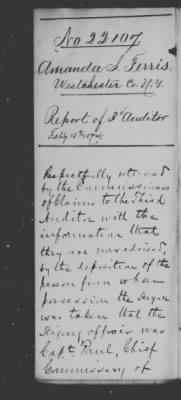 No 22107.
Amanda S. Ferris.
Westchester Co. N.Y.
Report of 3d Auditor
Feby 15th 1876.
Respectfully returned
by the Commissioners
of Claims to the Third
Auditor with the
information that
they are now advised,
by the deposition of the
person from whose
possession the
was taken that the
officer was
Capt. Paul, Chief
Commissary of